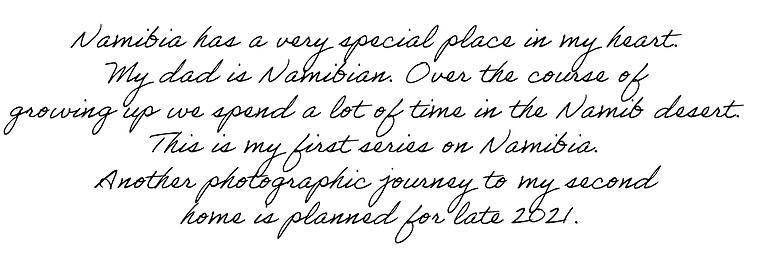 Namibia has a very special place in my heart.
My dad is Namibian. Over the course of
growing up we spend a lot of time in the Namib desert.
This is my first series on Namibia.
Another photographic journey to my second
home is planned for late 2021.